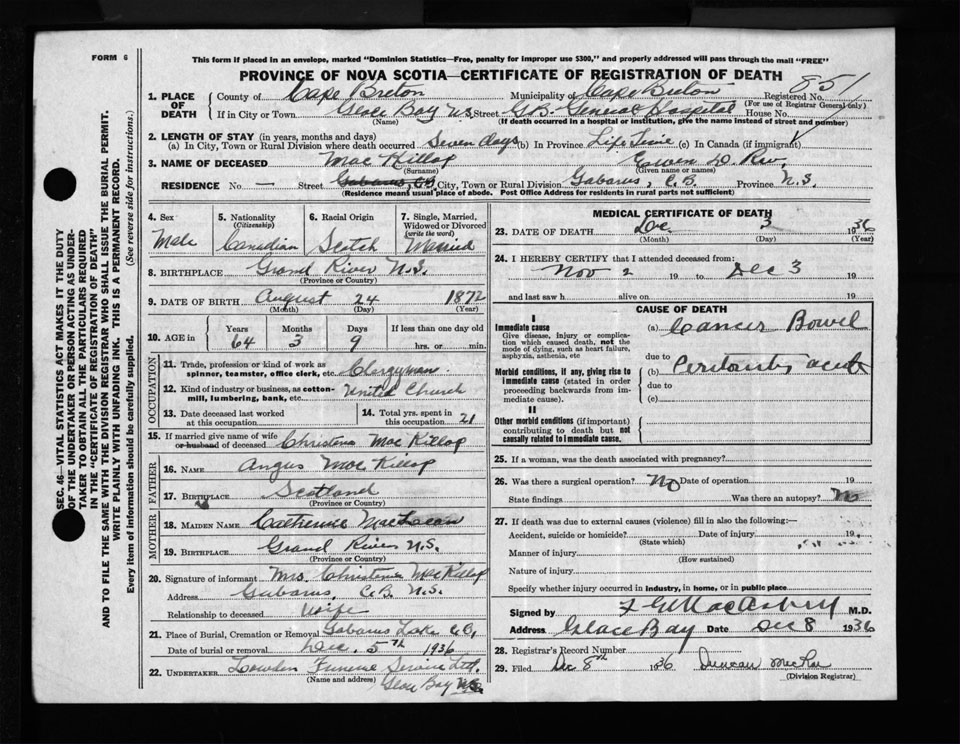 FORM 6
This form if placed in an envelope, marked "Dominion Statistics—Free, penalty for improper use $300," and properly addressed will pass through the mail "FREE"
PROVINCE OF NOVA SCOTIA—CERTIFICATE OF REGISTRATION OF DEATH
851
SEC. 46—VITAL STATISTICS ACT MAKES IT THE DUTY
OF THE UNDERTAKER OR PERSON ACTING AS UNDER-
TAKER TO OBTAIN ALL THE PARTICULARS REQUIRED
IN THE "CERTIFICATE OF REGISTRATION OF DEATH"
AND TO FILE THE SAME WITH THE DIVISION REGISTRAR WHO SHALL ISSUE THE BURIAL PERMIT.
WRITE PLAINLY WITH UNFADING INK. THIS IS A PERMANENT RECORD.
Every item of information should be carefully supplied. (See reverse side for instructions.)
1. PLACE OF DEATH
County of Cape Breton Municipality of Cape Breton Registered No.
(For use of Registrar General only)
If in City or Town Glace Bay N.S. Street G.B. General Hospital House No.
(Name) (If death occurred in a hospital or institution, give the name instead of street and number)
2. LENGTH OF STAY (in years, months and days)
(a) In City, Town or Rural Division where death occurred Seven days (b) In Province Life Time (c) In Canada (if immigrant)
3. NAME OF DECEASED Mac Killop Ewen D. Rev.
(Surname) (Given name or names)
RESIDENCE No. — Street Gabarus, CB City, Town or Rural Division Gabarus, C.B. Province N.S.
(Residence means usual place of abode. Post Office Address for residents in rural parts not sufficient)
4. Sex Male
5. Nationality (Citizenship) Canadian
6. Racial Origin Scotch
7. Single, Married, Widowed or Divorced (write the word) Married
8. BIRTHPLACE Grand River N.S.
(Province or Country)
9. DATE OF BIRTH August 24 1872
(Month) (Day) (Year)
10. AGE in Years 64 Months 3 Days 9 If less than one day old hrs. or min.
OCCUPATION
11. Trade, profession or kind of work as spinner, teamster, office clerk, etc. Clergyman
12. Kind of industry or business, as cotton-mill, lumbering, bank, etc. United Church
13. Date deceased last worked at this occupation
14. Total yrs. spent in this occupation 21
15. If married give name of wife or husband of deceased Christena Mac Killop
FATHER
16. NAME Angus Mac Killop
17. BIRTHPLACE Scotland
(Province or Country)
MOTHER
18. MAIDEN NAME Catherine MacLean
19. BIRTHPLACE Grand River N.S.
(Province or Country)
20. Signature of informant Mrs. Christena MacKillop
Address Gabarus, C.B. N.S.
Relationship to deceased Wife
21. Place of Burial, Cremation or Removal Gabarus Lake C.B.
Date of burial or removal Dec. 5th 1936
22. UNDERTAKER Lowden Funeral Service Ltd.
(Name and address) Glace Bay N.S.
MEDICAL CERTIFICATE OF DEATH
23. DATE OF DEATH Dec 3 1936
(Month) (Day) (Year)
24. I HEREBY CERTIFY that I attended deceased from:
Nov 2 19 to Dec 3 19
and last saw h alive on 19
CAUSE OF DEATH
I
Immediate cause
Give disease, injury or complication which caused death, not the mode of dying, such as heart failure, asphyxia, asthenia, etc
(a) Cancer Bowel
due to
Morbid conditions, if any, giving rise to immediate cause (stated in order proceeding backwards from immediate cause).
(b) Peritonitis acute
due to
(c)
II
Other morbid conditions (if important) contributing to death but not causally related to immediate cause.
25. If a woman, was the death associated with pregnancy?
26. Was there a surgical operation? No Date of operation 19
State findings Was there an autopsy? No
27. If death was due to external causes (violence) fill in also the following:—
Accident, suicide or homicide? Date of injury 19
(State which)
Manner of injury
(How sustained)
Nature of injury
Specify whether injury occurred in industry, in home, or in public place
Signed by M.D.
Address Glace Bay Date Dec 8 1936
28. Registrar's Record Number
29. Filed Dec 8th 1936 Duncan McRae
(Division Registrar)